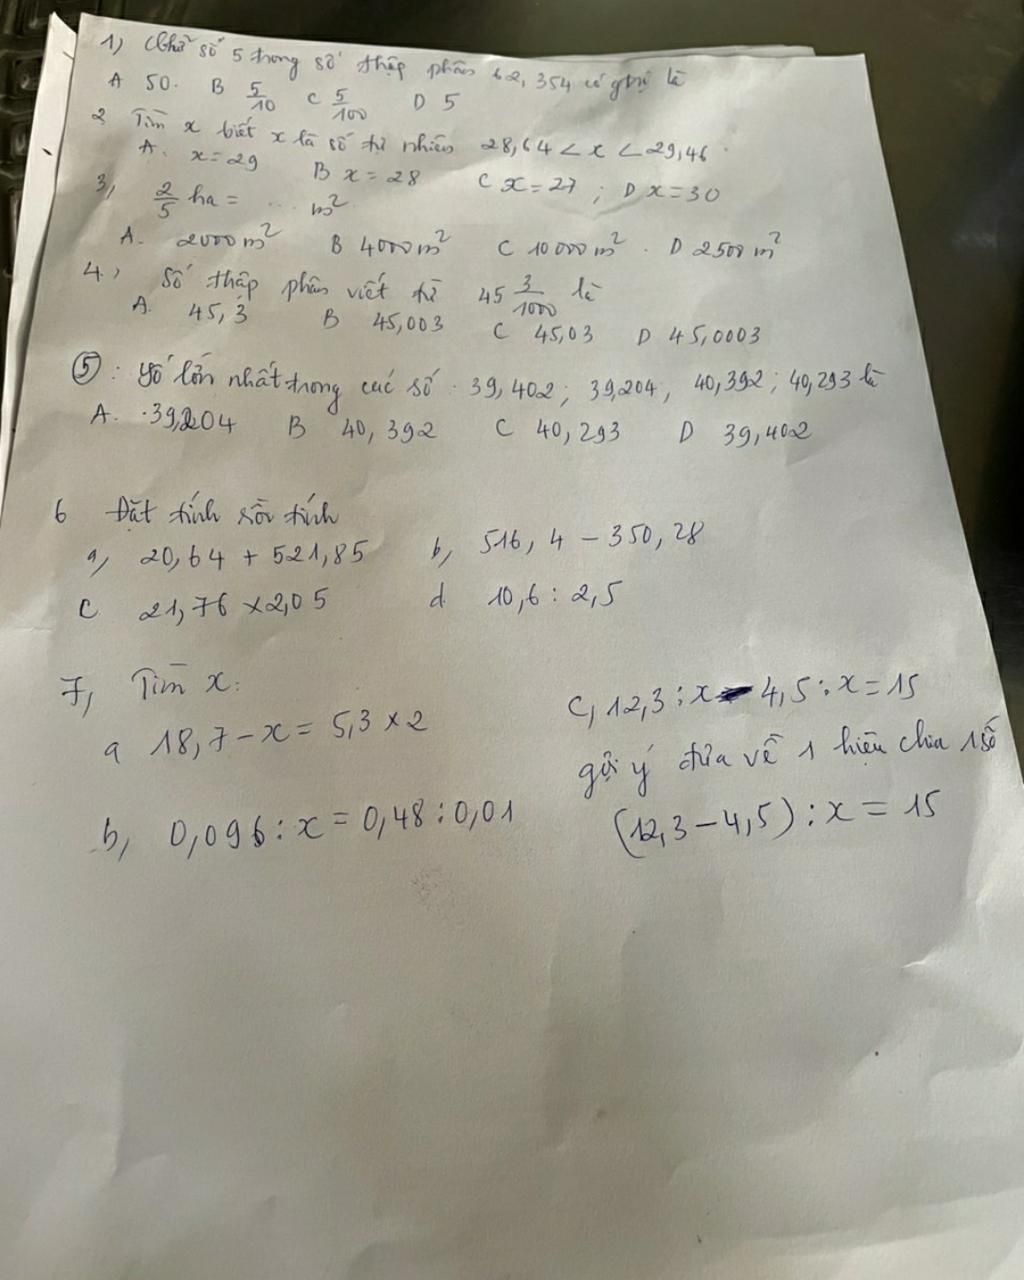 1) Chữ số 5 trong số thập phân 62,354 có gtrị là
A 50. B 5/10 C 5/100 D 5
2 Tìm x biết x là số tự nhiên 28,64 < x < 29,46.
A. x = 29 B x = 28 C x = 27 ; D x = 30
3, 2/5 ha = ... m²
A. 2000 m² B 4000 m² C 10000 m². D 2500 m²
4, Số thập phân viết từ 45 3/1000 là
A. 45,3 B 45,003 C 45,03 D 45,0003
⑤: Số lớn nhất trong các số. 39,402; 39,204, 40,392; 40,293 là
A. 39,204 B 40,392 C 40,293 D 39,402
6 Đặt tính rồi tính
a, 20,64 + 521,85 b, 516,4 - 350,28
c 21,76 x 2,05 d 10,6 : 2,5
7, Tìm x:
a 18,7 - x = 5,3 x 2
b, 0,096 : x = 0,48 : 0,01
c, 12,3 : x - 4,5 : x = 15
gợi ý đưa về 1 hiệu chia 1 số
(12,3 - 4,5) : x = 15